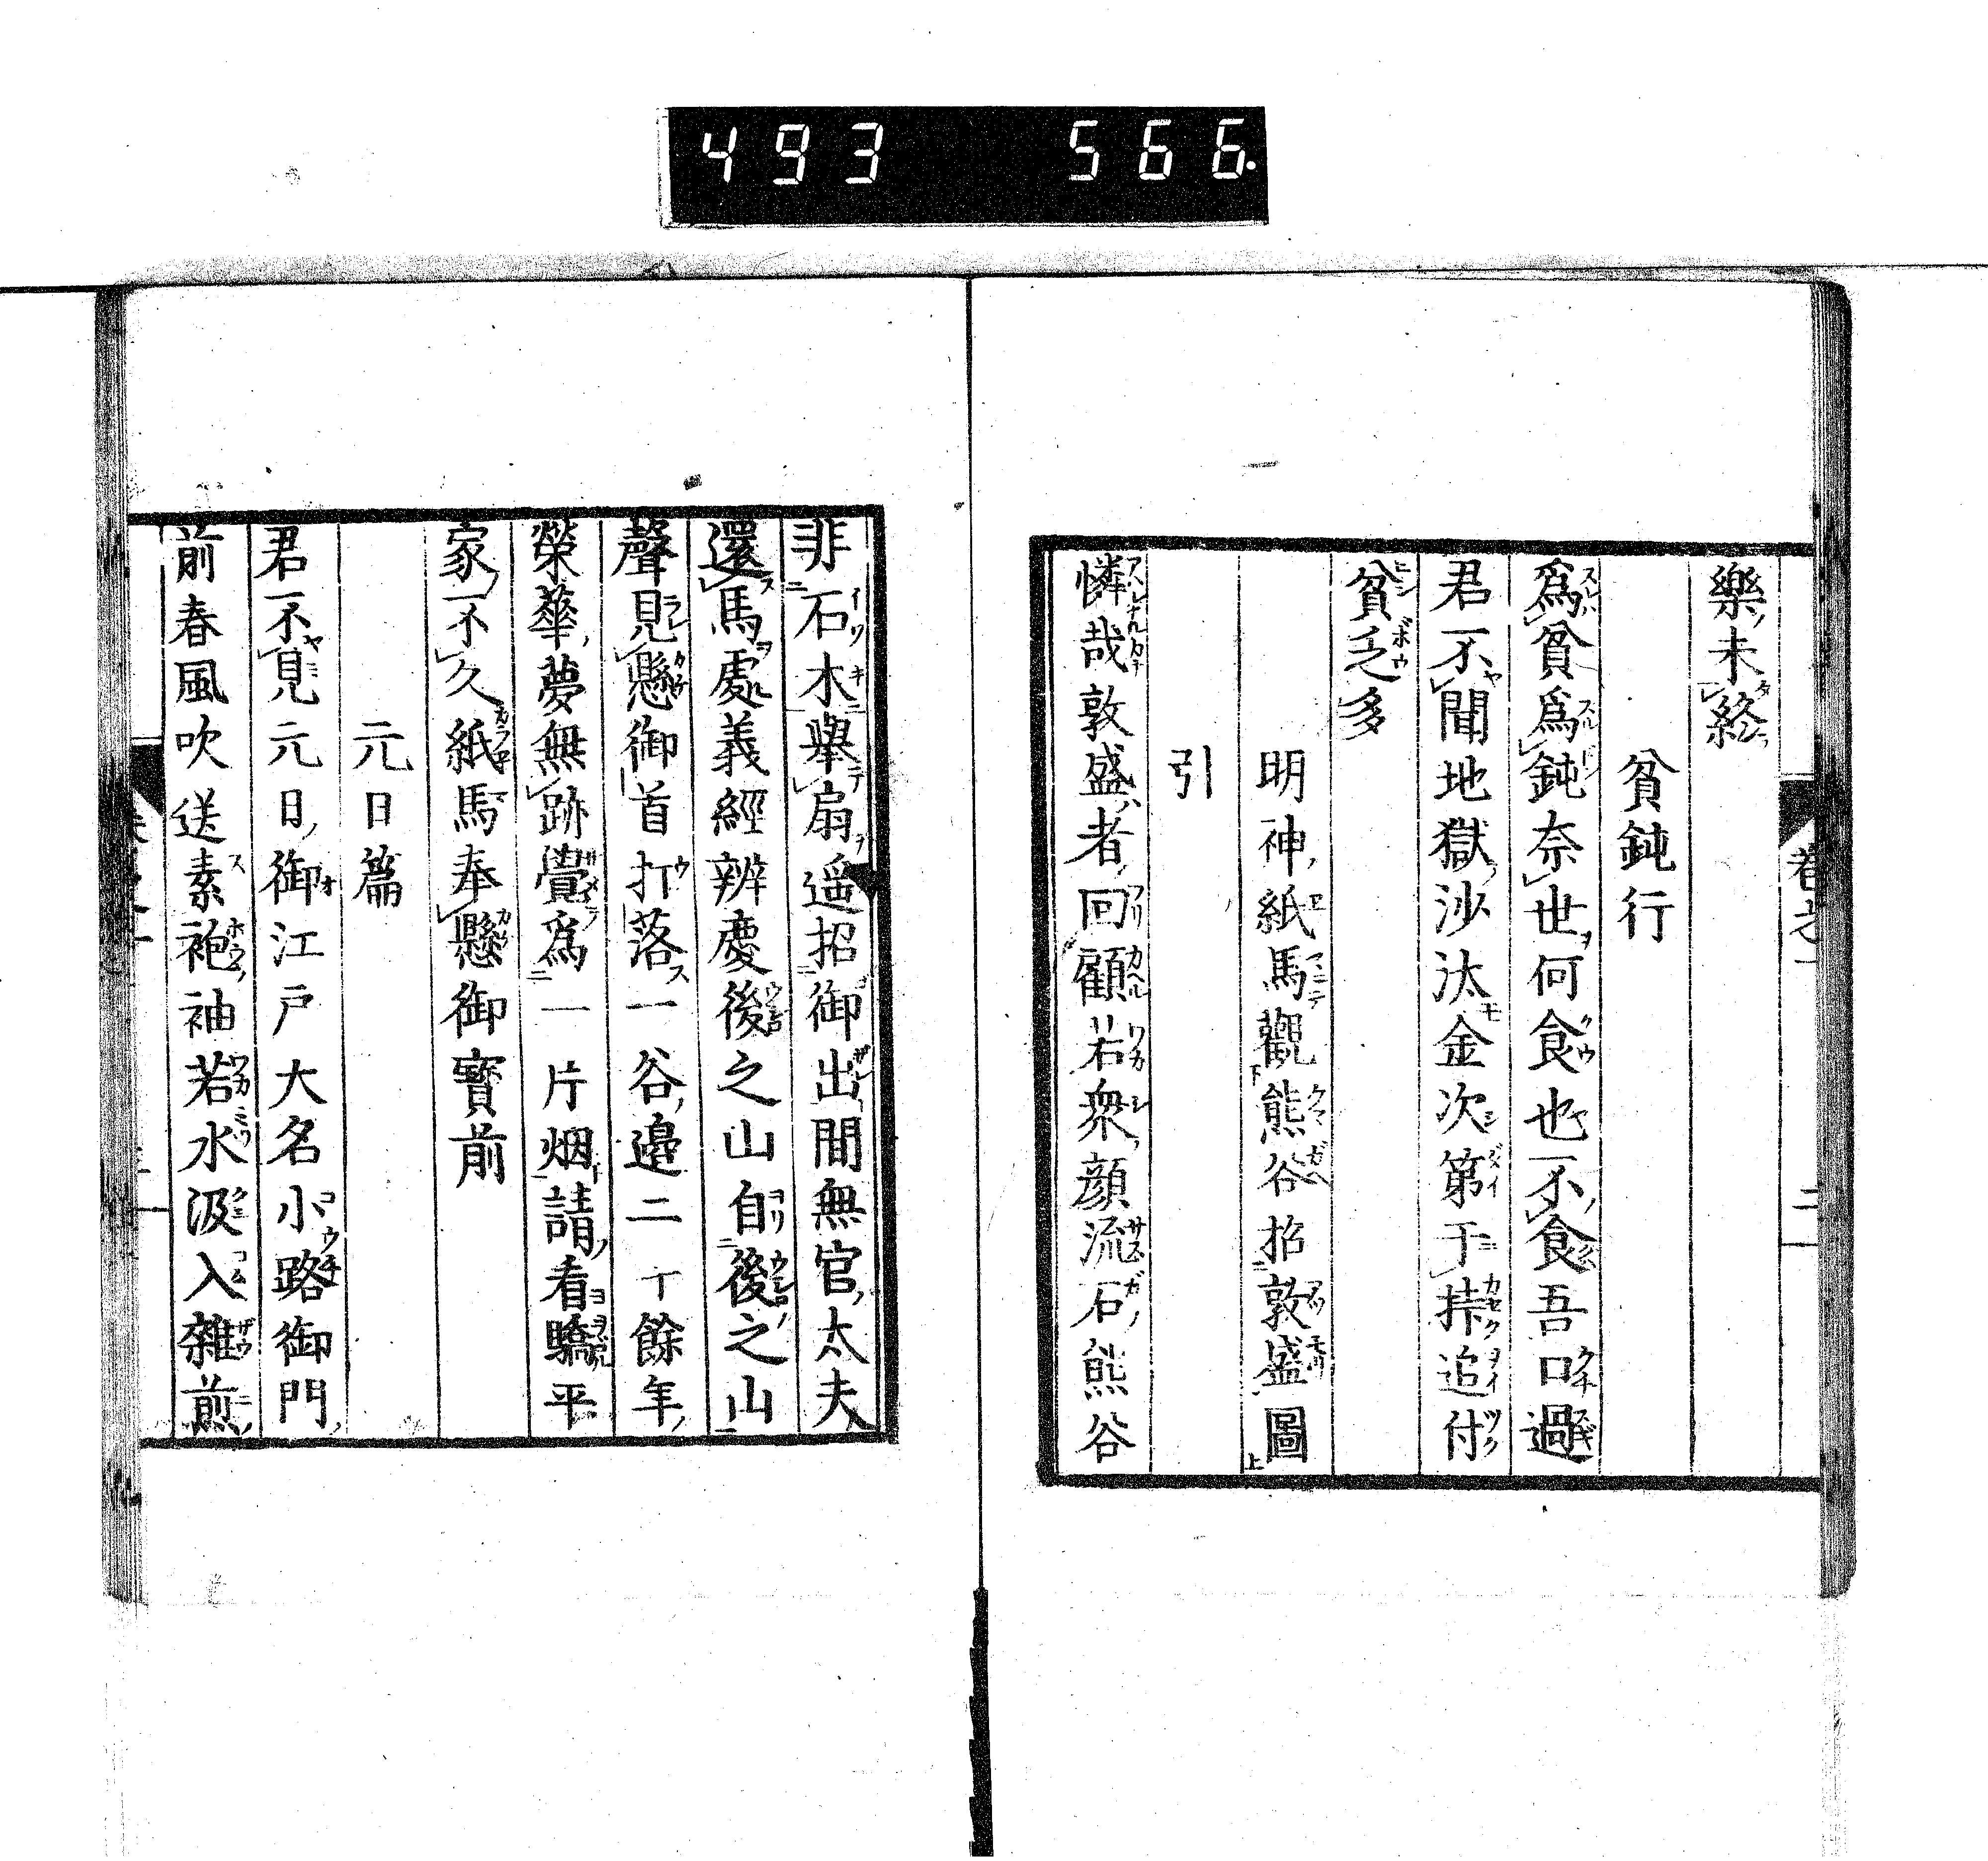 493 566.
樂未終
貧鈍行
爲貧爲鈍奈世何食也不食吾口過
君不聞地獄沙汰金次第于挊追付
貧乏多
明神紙馬觀熊谷招敦盛圖
引
憐哉敦盛者回顧若衆顔流石熊谷
非石木舉扇遥招御出間無官太夫
還馬處義經辨慶後之山自後之山
聲見懸御首打落一谷邉二丁餘年
榮華夢無跡覺爲一片烟請看驕平
家不久紙馬奉懸御寳前
元日篇
君不見元日御江戸大名小路御門
前春風吹送素袍袖若水汲入雜煎